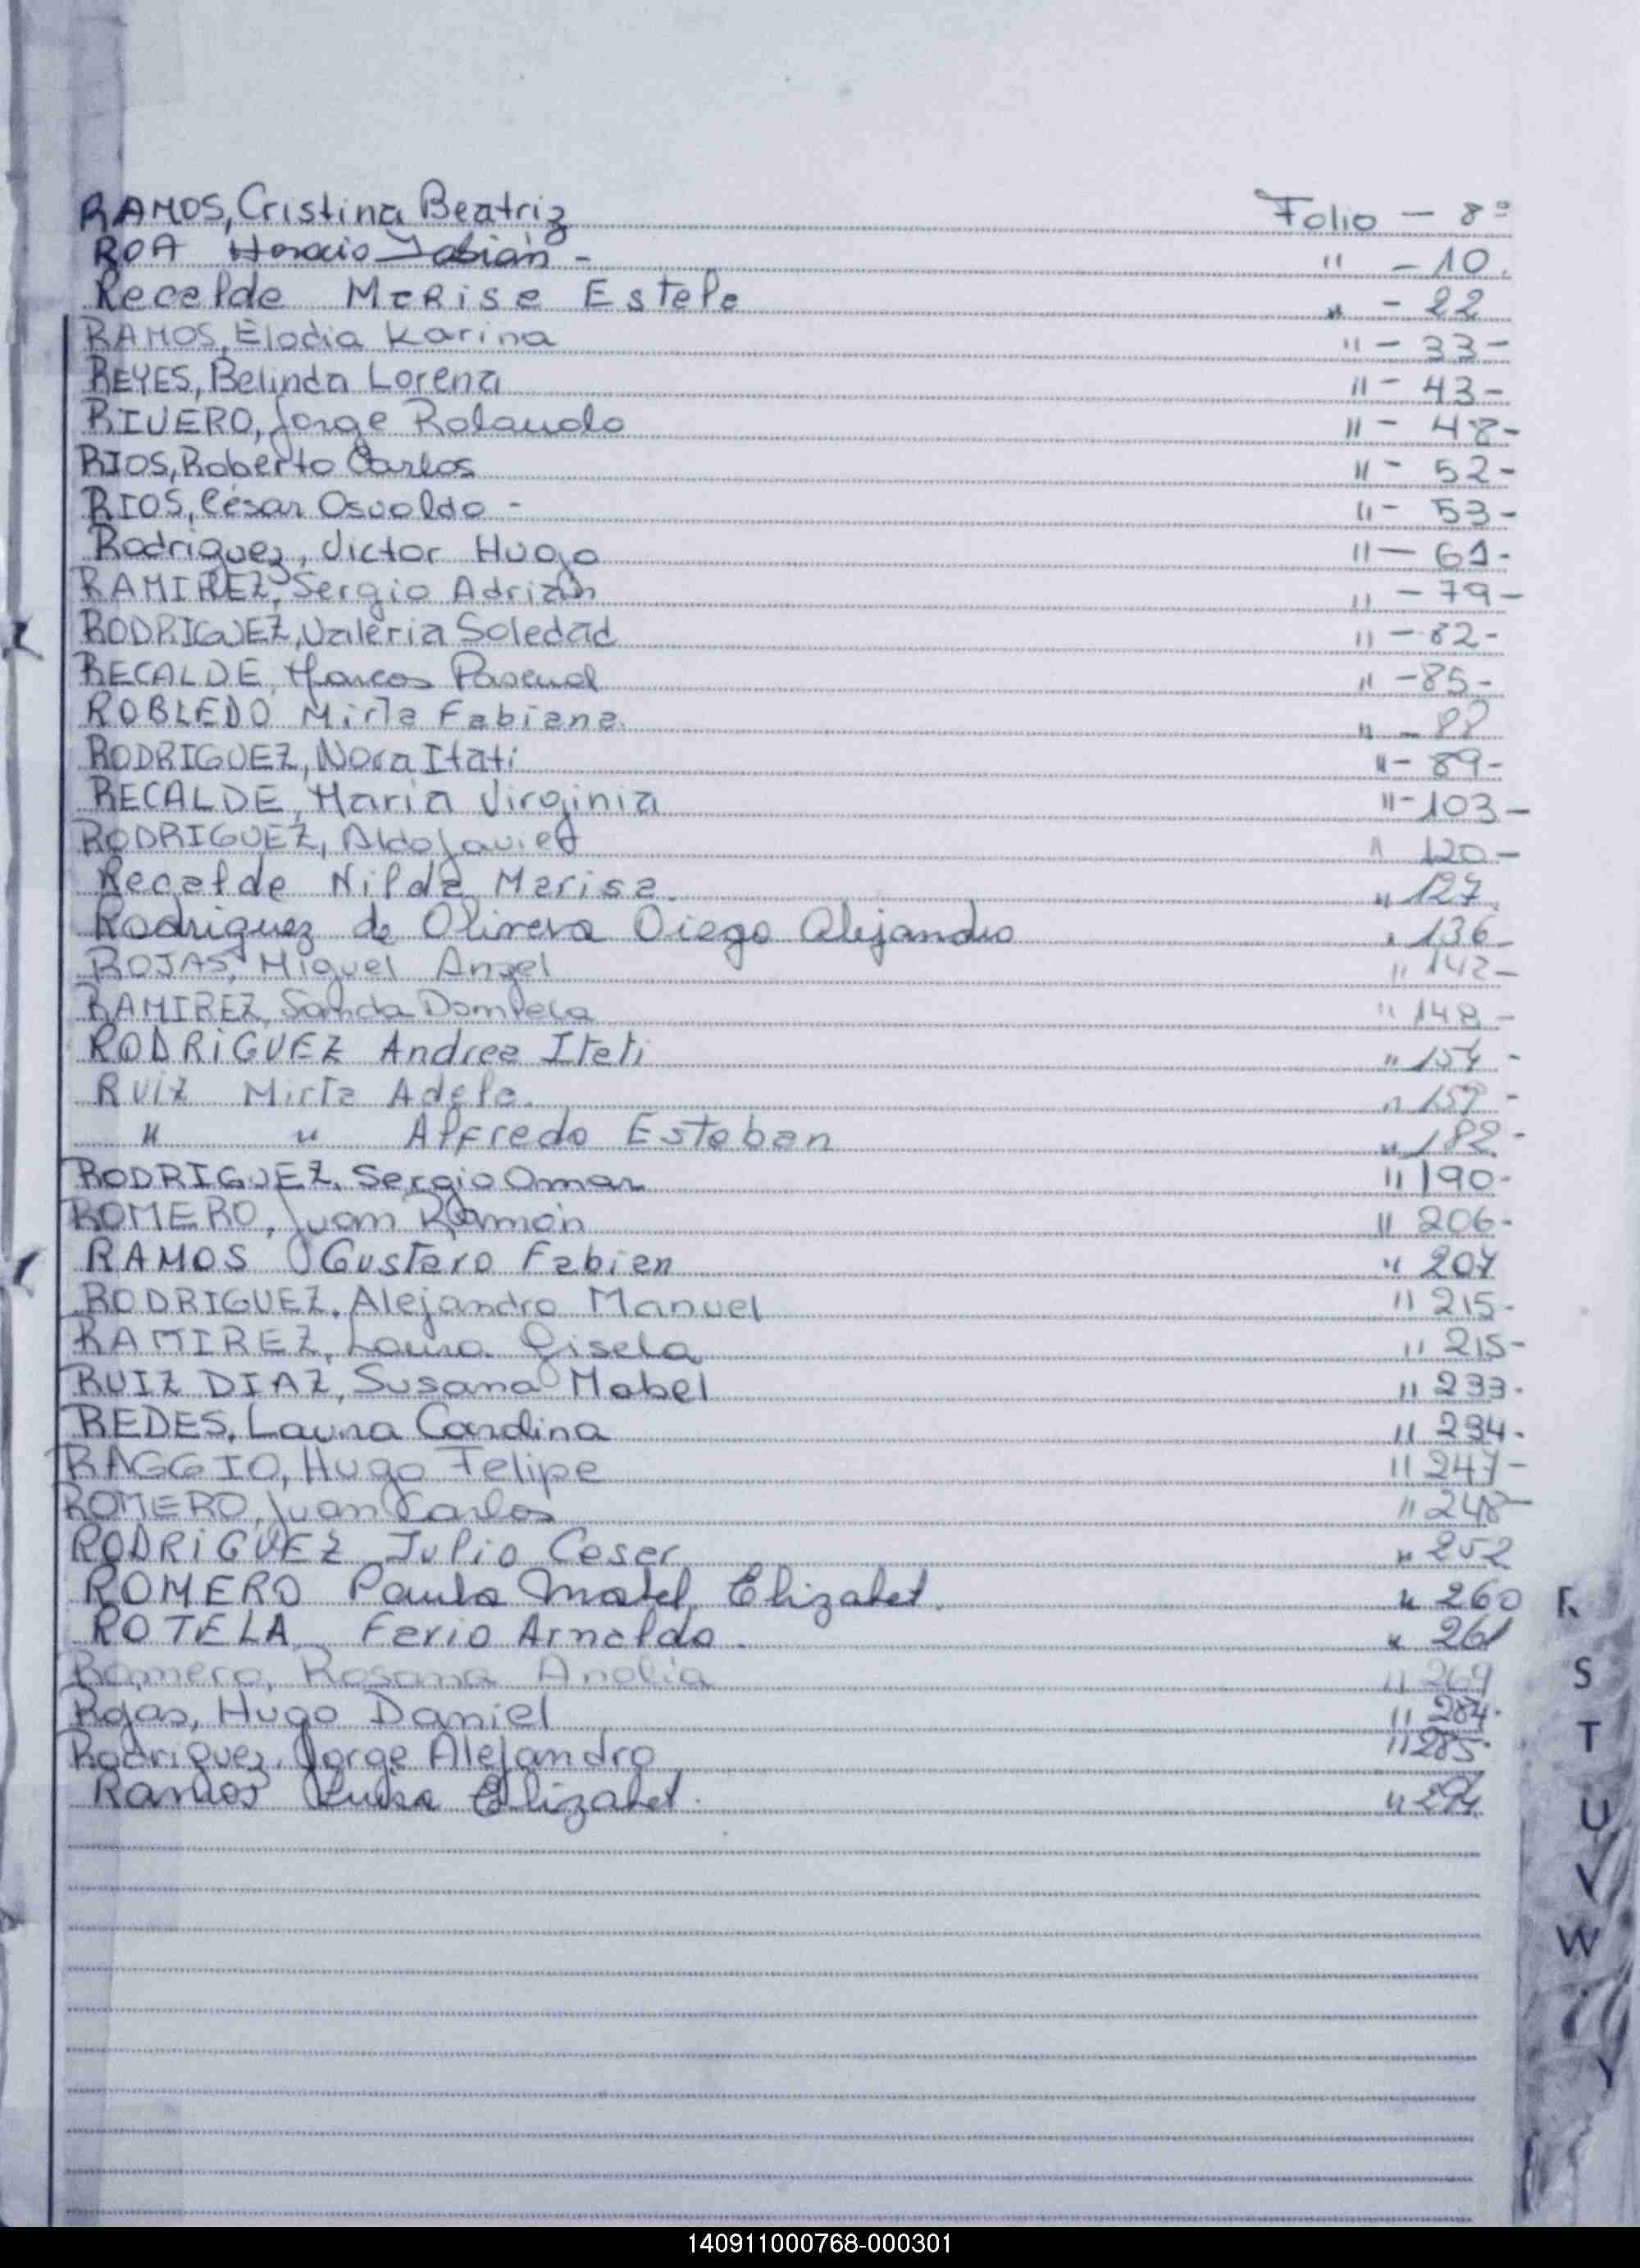 RAMOS, Cristina Beatriz Folio - 8º
ROA Horacio Fabián - " - 10.
Recalde Marisa Estela " - 22
RAMOS, Elodia Karina " - 33 -
REYES, Belinda Lorena " - 43 -
RIVERO, Jorge Rolando " - 48 -
RIOS, Roberto Carlos " - 52 -
RIOS, César Osvaldo - " - 53 -
Rodriguez, Victor Hugo " - 61 -
RAMIREZ, Sergio Adrián " - 79 -
RODRIGUEZ, Valeria Soledad " - 82 -
RECALDE, Marcos Pascual " - 85 -
ROBLEDO Mirta Fabiana. " - 88
RODRIGUEZ, Nora Itati " - 89 -
RECALDE, Maria Virginia " - 103 -
RODRIGUEZ, Aldo Javier " 120 -
Recalde Nilda Marisa. " 127.
Rodriguez de Olivera Diego Alejandro " 136 -
ROJAS, Miguel Angel " 142 -
RAMIREZ, Sanda " 148 -
RODRIGUEZ Andrea Itati " 154 -
RUIZ Mirta Adela. " 159 -
" " Alfredo Esteban " 182 -
RODRIGUEZ, Sergio Omar " 190 -
ROMERO, Juan Ramón " 206 -
RAMOS Gustavo Fabian " 207
RODRIGUEZ, Alejandro Manuel " 215 -
RAMIREZ, Laura Gisela " 215 -
RUIZ DIAZ, Susana Mabel " 233 -
REDES, Laura Carolina " 234 -
RAGGIO, Hugo Felipe " 247 -
ROMERO, Juan Carlos " 248 -
RODRIGUEZ Julio Cesar " 252
ROMERO Paula Mabel Elizabet. " 260
ROTELA Arnaldo. " 261
Romero, Rosana Analia " 269
Rojas, Hugo Daniel " 284 -
Rodriguez, Jorge Alejandro " 285 -
Ramos Luisa Elizabet. " 294
R
S
T
U
V
W
Y
140911000768-000301